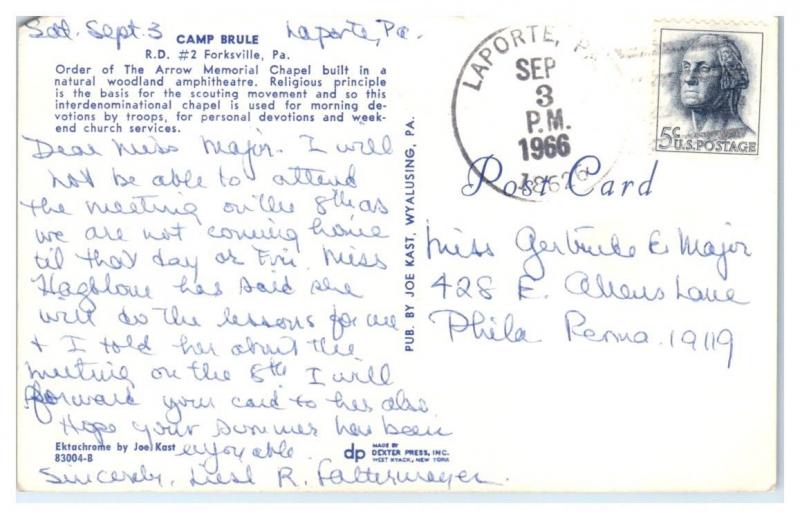 Sat. Sept. 3 Laporte, Pa.
CAMP BRULE
R.D. #2 Forksville, Pa.
Order of The Arrow Memorial Chapel built in a
natural woodland amphitheatre. Religious principle
is the basis for the scouting movement and so this
interdenominational chapel is used for morning de-
votions by troops, for personal devotions and week-
end church services.
Dear Miss Major. I will
not be able to attend
the meeting on the 8th as
we are not coming home
til that day or Fri. Miss
has said she
will do the lessons for me
& I told her about the
meeting on the 8th I will
forward your card to her also.
Hope your summer has been
enjoyable.
Sincerely, Liesl R. Faltermayer
Ektachrome by Joe Kast
83004-B
dp MADE BY
DEXTER PRESS, INC.
WEST NYACK, NEW YORK
PUB. BY JOE KAST, WYALUSING, PA.
LAPORTE, PA.
SEP
3
P.M.
1966
18626
5¢ U.S. POSTAGE
Post Card
Miss Gertrude E. Major
428 E. Allens Lane
Phila Penna. 19119